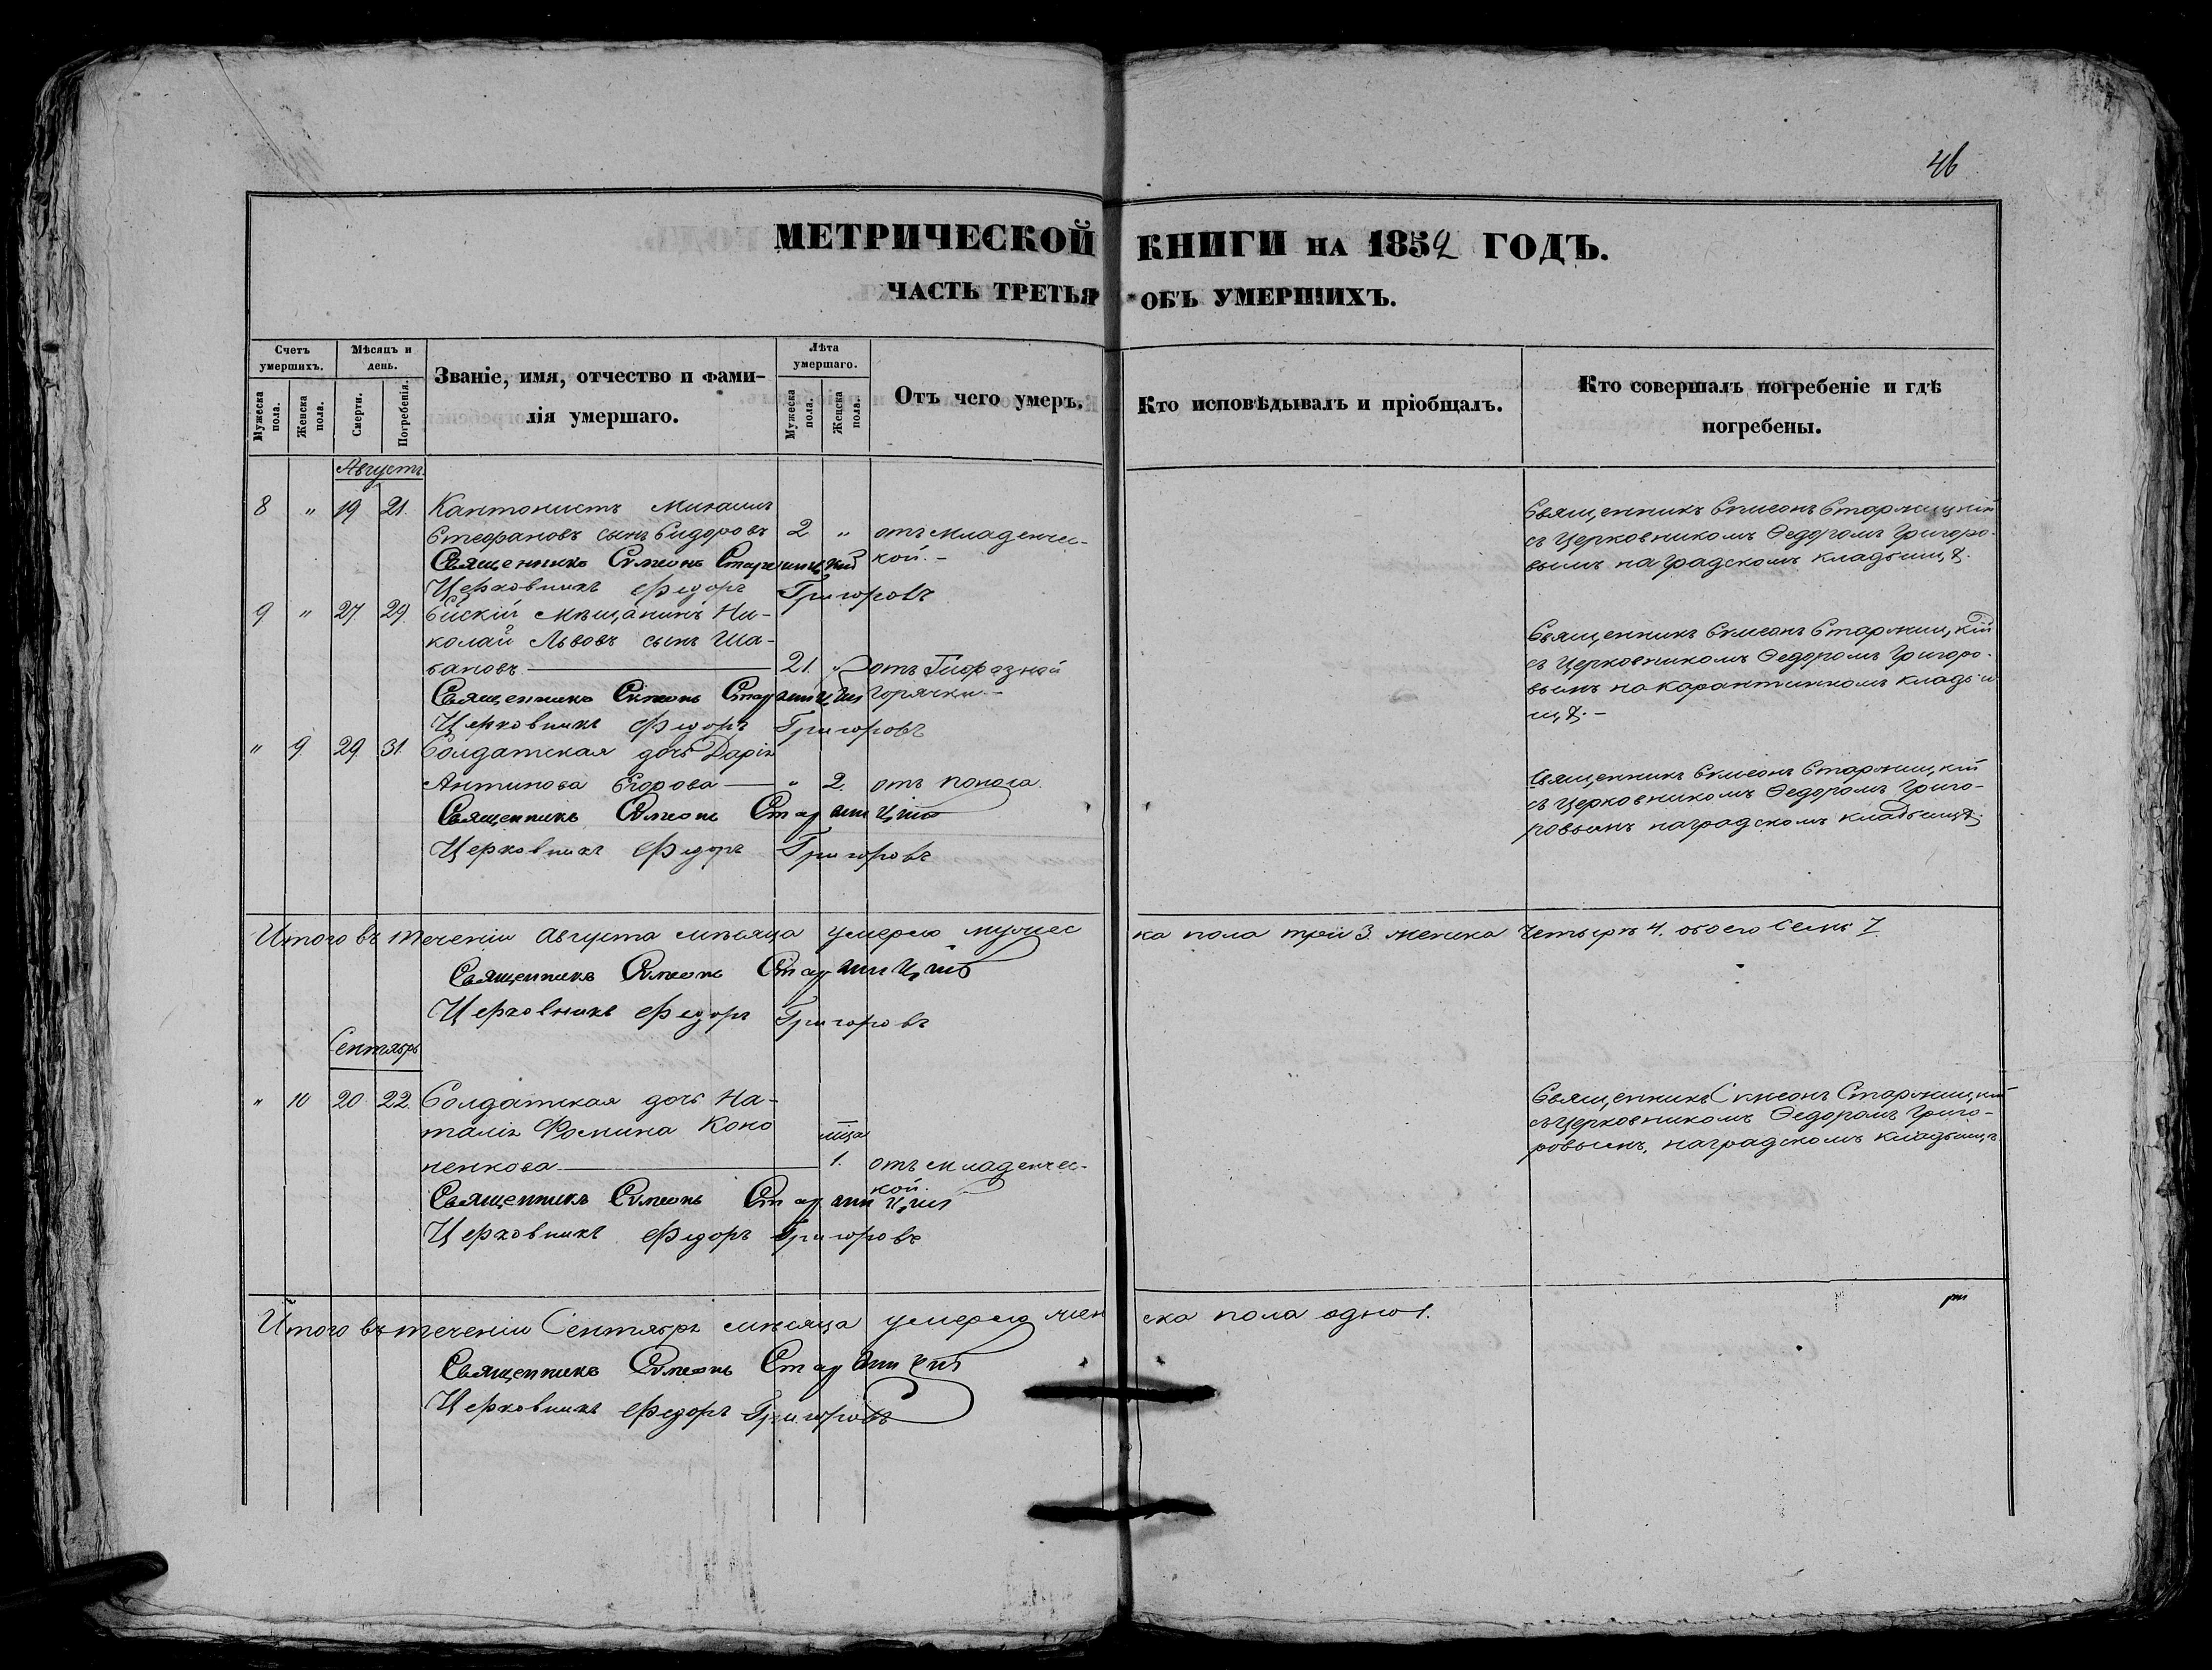 46
МЕТРИЧЕСКОЙ КНИГИ НА 1852 ГОДЪ.
ЧАСТЬ ТРЕТЬЯ ОБЪ УМЕРШИХЪ.
Счетъ умершихъ.
Мужеска пола.
Женска пола.
Мѣсяцъ и день.
Смерти.
Погребенія.
Званіе, имя, отчество и фами-
лія умершаго.
Лѣта умершаго.
Мужеска пола.
Женска пола.
Отъ чего умеръ.
Кто исповѣдывалъ и пріобщалъ.
Кто совершалъ погребеніе и гдѣ
погребены.
Августъ
8 " 19 21. Кантонистъ Михаилъ
Стефановъ сынъ Сидоровъ 2 " отъ младенчес-
кой. -
Священникъ Симеонъ Стармицкій
Церковникъ Федоръ Григоровъ
Священникъ Симеонъ Стармицкій
съ Церковникомъ Ѳедоромъ Григоро-
вымъ на градскомъ кладбищѣ.
9 " 27 29. Ейскій Мѣщанинъ Ни-
колай Львовъ сынъ Ша-
бановъ 21. " отъ
горячки. -
Священникъ Симеонъ Стармицкій
Церковникъ Федоръ Григоровъ
Священникъ Симеонъ Стармицкій
съ Церковникомъ Ѳедоромъ Григоро-
вымъ на карантинномъ кладби
щѣ. -
" 9. 29. 31. Солдатская дочь Дарія
Антипова Егорова " 2. отъ поноса.
Священникъ Симеонъ Стармицкій
Церковникъ Федоръ Григоровъ
Священникъ Симеонъ Стармицкій
съ Церковникомъ Ѳедоромъ Григо-
ровымъ на градскомъ кладбищѣ.
Итого въ теченіи Августа мѣсяца умерло мужес
ка пола три 3. женска четыре 4. обоего семь 7.
Священникъ Симеонъ Стармицкій
Церковникъ Федоръ Григоровъ
Сентябрь
" 10 20 22. Солдатская дочь На-
талія Фомина Коно
ненкова мца 1. отъ младенчес-
кой.
Священникъ Симеонъ Стармицкій
Церковникъ Федоръ Григоровъ
Священникъ Симеонъ Стармицкій
съ Церковникомъ Ѳедоромъ Григо-
ровымъ, на градскомъ кладбищѣ.
Итого въ теченіи Сентября мѣсяца умерло жен
ска пола одно 1.
Священникъ Симеонъ Стармицкій
Церковникъ Федоръ Григоровъ